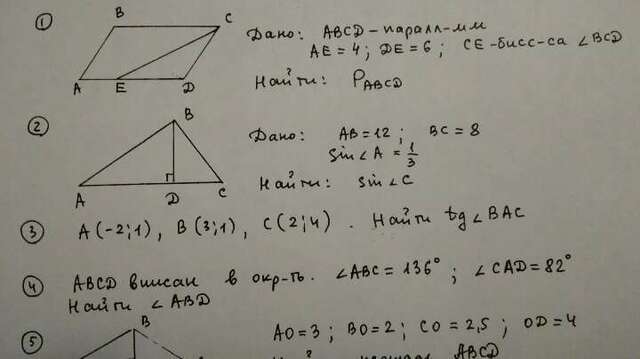 1
B
C
A
E
D
Дано: ABCD - паралл-мм
AE = 4; DE = 6; CE - бисс-са ∠BCD
Найти: P_ABCD
2
B
A
D
C
Дано: AB = 12; BC = 8
sin∠A = 1/3
Найти: sin∠C
3 A(-2;1), B(3;1), C(2;4). Найти tg∠BAC
4 ABCD вписан в окр-ть. ∠ABC = 136°; ∠CAD = 82°
Найти ∠ABD
5
B
AO = 3; BO = 2; CO = 2,5; OD = 4
ABCD